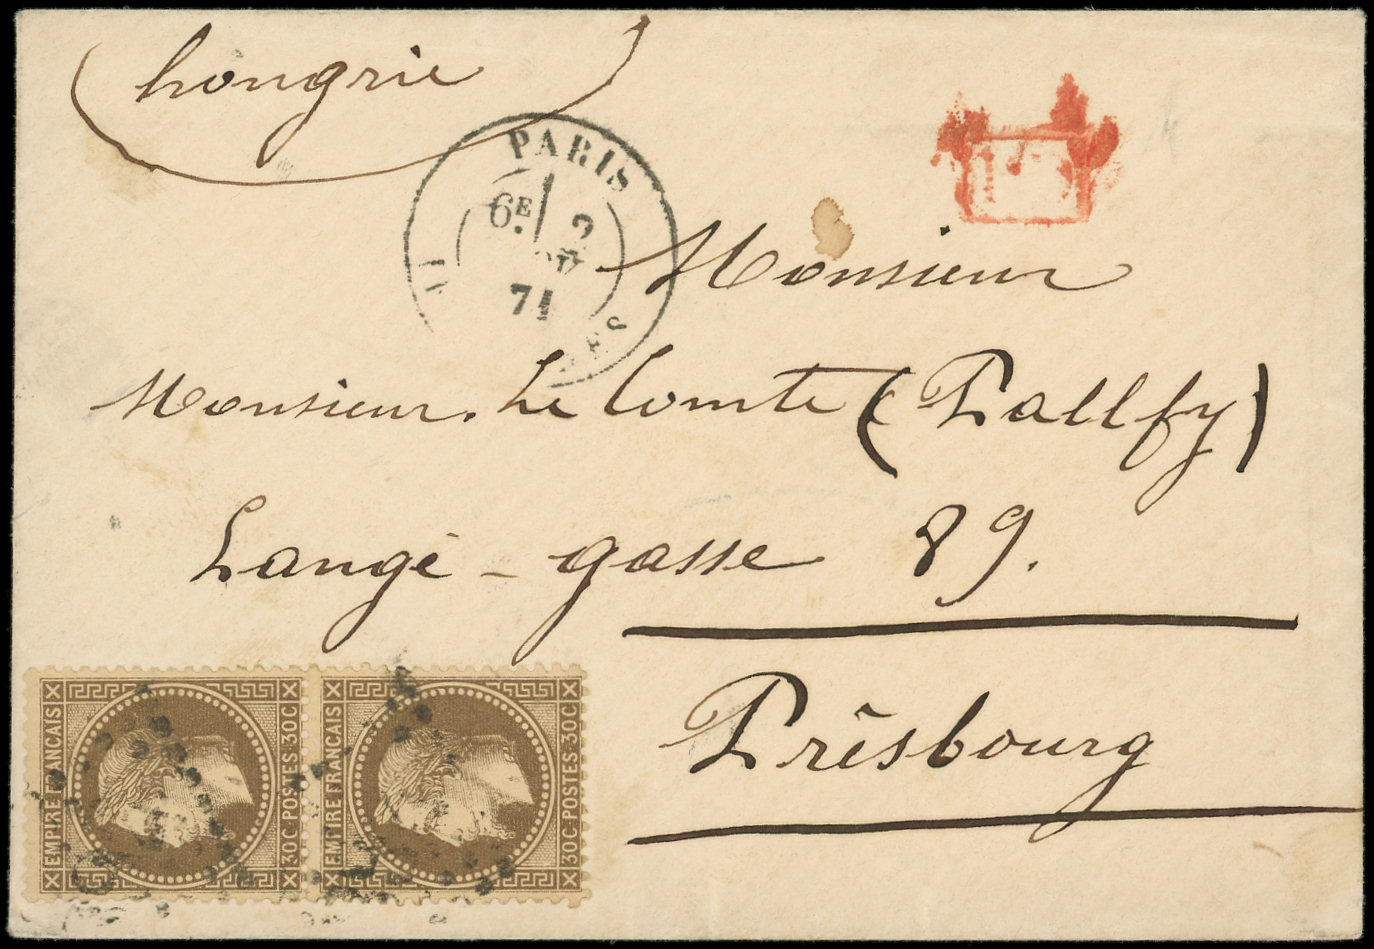 hongrie
PARIS
6E. 2
71
Monsieur
Monsieur. Le Comte (Pallfy)
Langé - gasse 89.
Prêsbourg
EMPIRE FRANÇAIS
30C POSTES 30C
EMPIRE FRANÇAIS
30C POSTES 30C